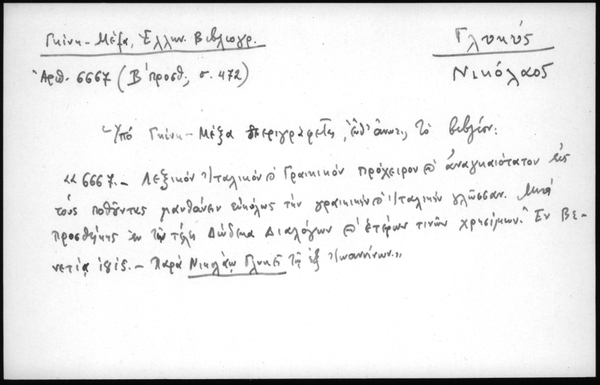 Γκίνη - Μέξα, Ἑλλην. Βιβλιογρ.
Γλυκύς
Νικόλαος
Ἀρθ. 6667 (Β' προσθ., σ. 472)
Ὑπό Γκίνη - Μέξα περιγράφεται, τὸ βιβλίον:
"6667. - Λεξικόν Ἰταλικόν Γραικικόν πρόχειρον ἀναγκαιότατον εἰς
τοὺς ποθοῦντας μανθάνειν εὐκόλως τὴν γραικικὴν Ἰταλικήν γλῶσσαν. Μετά
προσθήκης ἐν τῷ τέλει Δώδεκα Διαλόγων ἑτέρων τινῶν χρησίμων. Ἐν Βε-
νετίᾳ 1815. - Παρὰ Νικολάῳ Γλυκεῖ τῷ ἐξ Ἰωαννίνων."